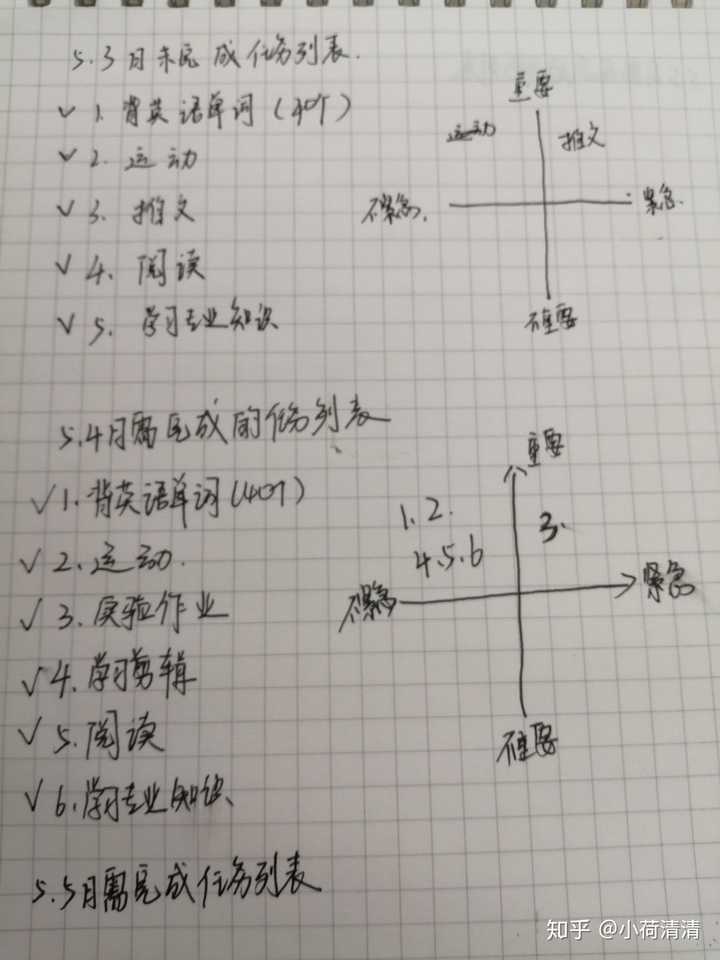 5.3日未完成任务列表.
✓ 1. 背英语单词(40个)
✓ 2. 运动
✓ 3. 推文
✓ 4. 阅读
✓ 5. 学习专业知识
重要
运动
推文
不紧急.
紧急.
不重要
5.4日需完成的任务列表
✓ 1. 背英语单词(40个)
✓ 2. 运动.
✓ 3. 实验作业
✓ 4. 学习剪辑
✓ 5. 阅读
✓ 6. 学习专业知识、
重要
1.2.
4.5.6
3.
不紧急
紧急
不重要
5.5日需完成任务列表
知乎 @小荷清清